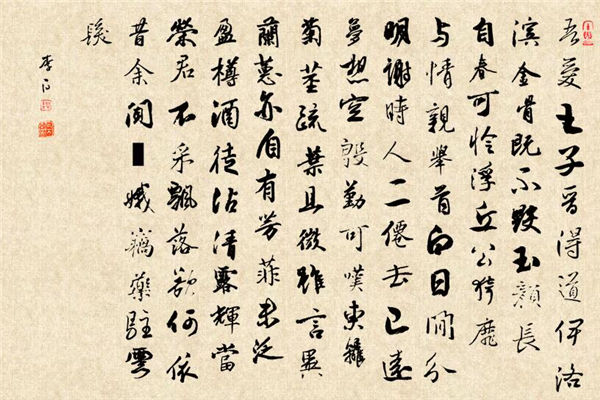 吾愛王子晋得道伊洛
濱金骨既不毀玉顏長
自春可怜浮丘公猗靡
与情親舉首白日間分
明謝時人二僊去已遠
夢想空殷勤可嘆東籬
菊莖疏葉且微雖言異
蘭蕙亦自有芳菲未泛
盈樽酒徒沾清露輝當
榮君不采飄落欲何依
昔余聞■娥竊藥駐雲
髮
李白